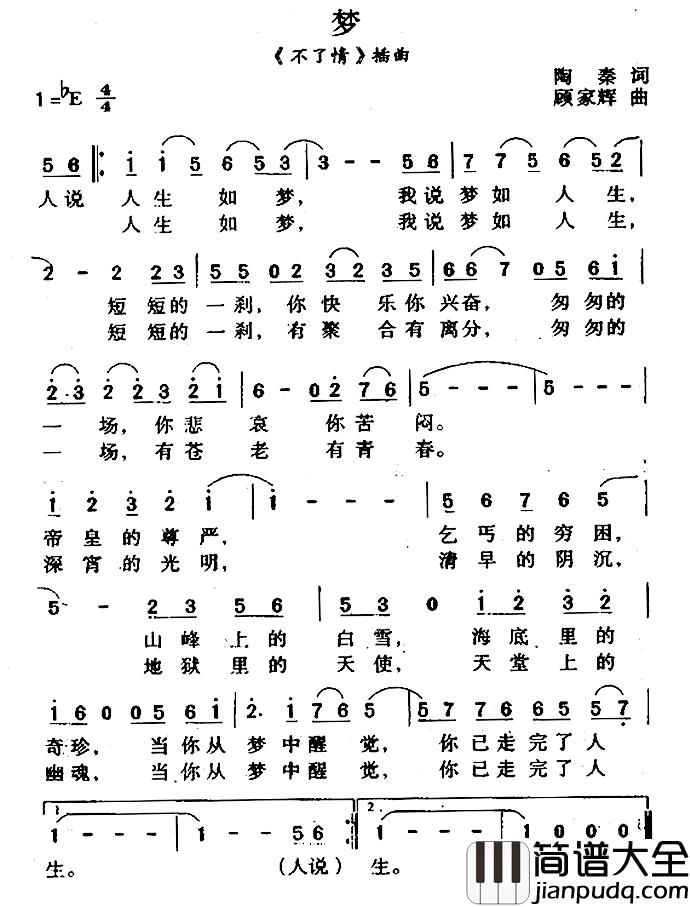 梦
《不了情》插曲
陶秦词
1=♭E 4/4
顾家辉 曲
5 6 1 1 5 6 5 3 3 - - 5 6 7 7 5 6 5 2
人说 人生 如 梦, 我说梦如 人 生,
人生 如 梦, 我说梦如 人 生,
2 - 2 2 3 5 5 0 2 3 2 3 5 6 6 7 0 5 6 1
短 短的 一刹, 你快 乐你 兴奋, 匆匆的
短 短的 一刹, 有聚 合有 离分, 匆匆的
2 3 2 2 3 2 1 6 - 0 2 7 6 5 - - - 5 - - -
一 场, 你悲 哀 你苦 闷。
一 场, 有苍 老 有青 春。
1 2 3 2 1 1 - - - 5 6 7 6 5
帝皇的尊严, 乞丐的穷困,
深宵的光明, 清早的阴沉,
5 - 2 3 5 6 5 3 0 1 2 3 2
山峰 上的 白雪, 海底 里的
地狱 里的 天使, 天堂 上的
1 6 0 0 5 6 1 2. 1 7 6 5 5 7 7 7 6 6 5 5 7
奇珍, 当你从 梦中醒 觉, 你已走完了人
幽魂, 当你从 梦中醒 觉, 你已走完了人
1. 2.
1 - - - 1 - - 5 6 1 - - - 1 0 0 0
生。 (人说) 生。
简谱大全
jianpudq.com